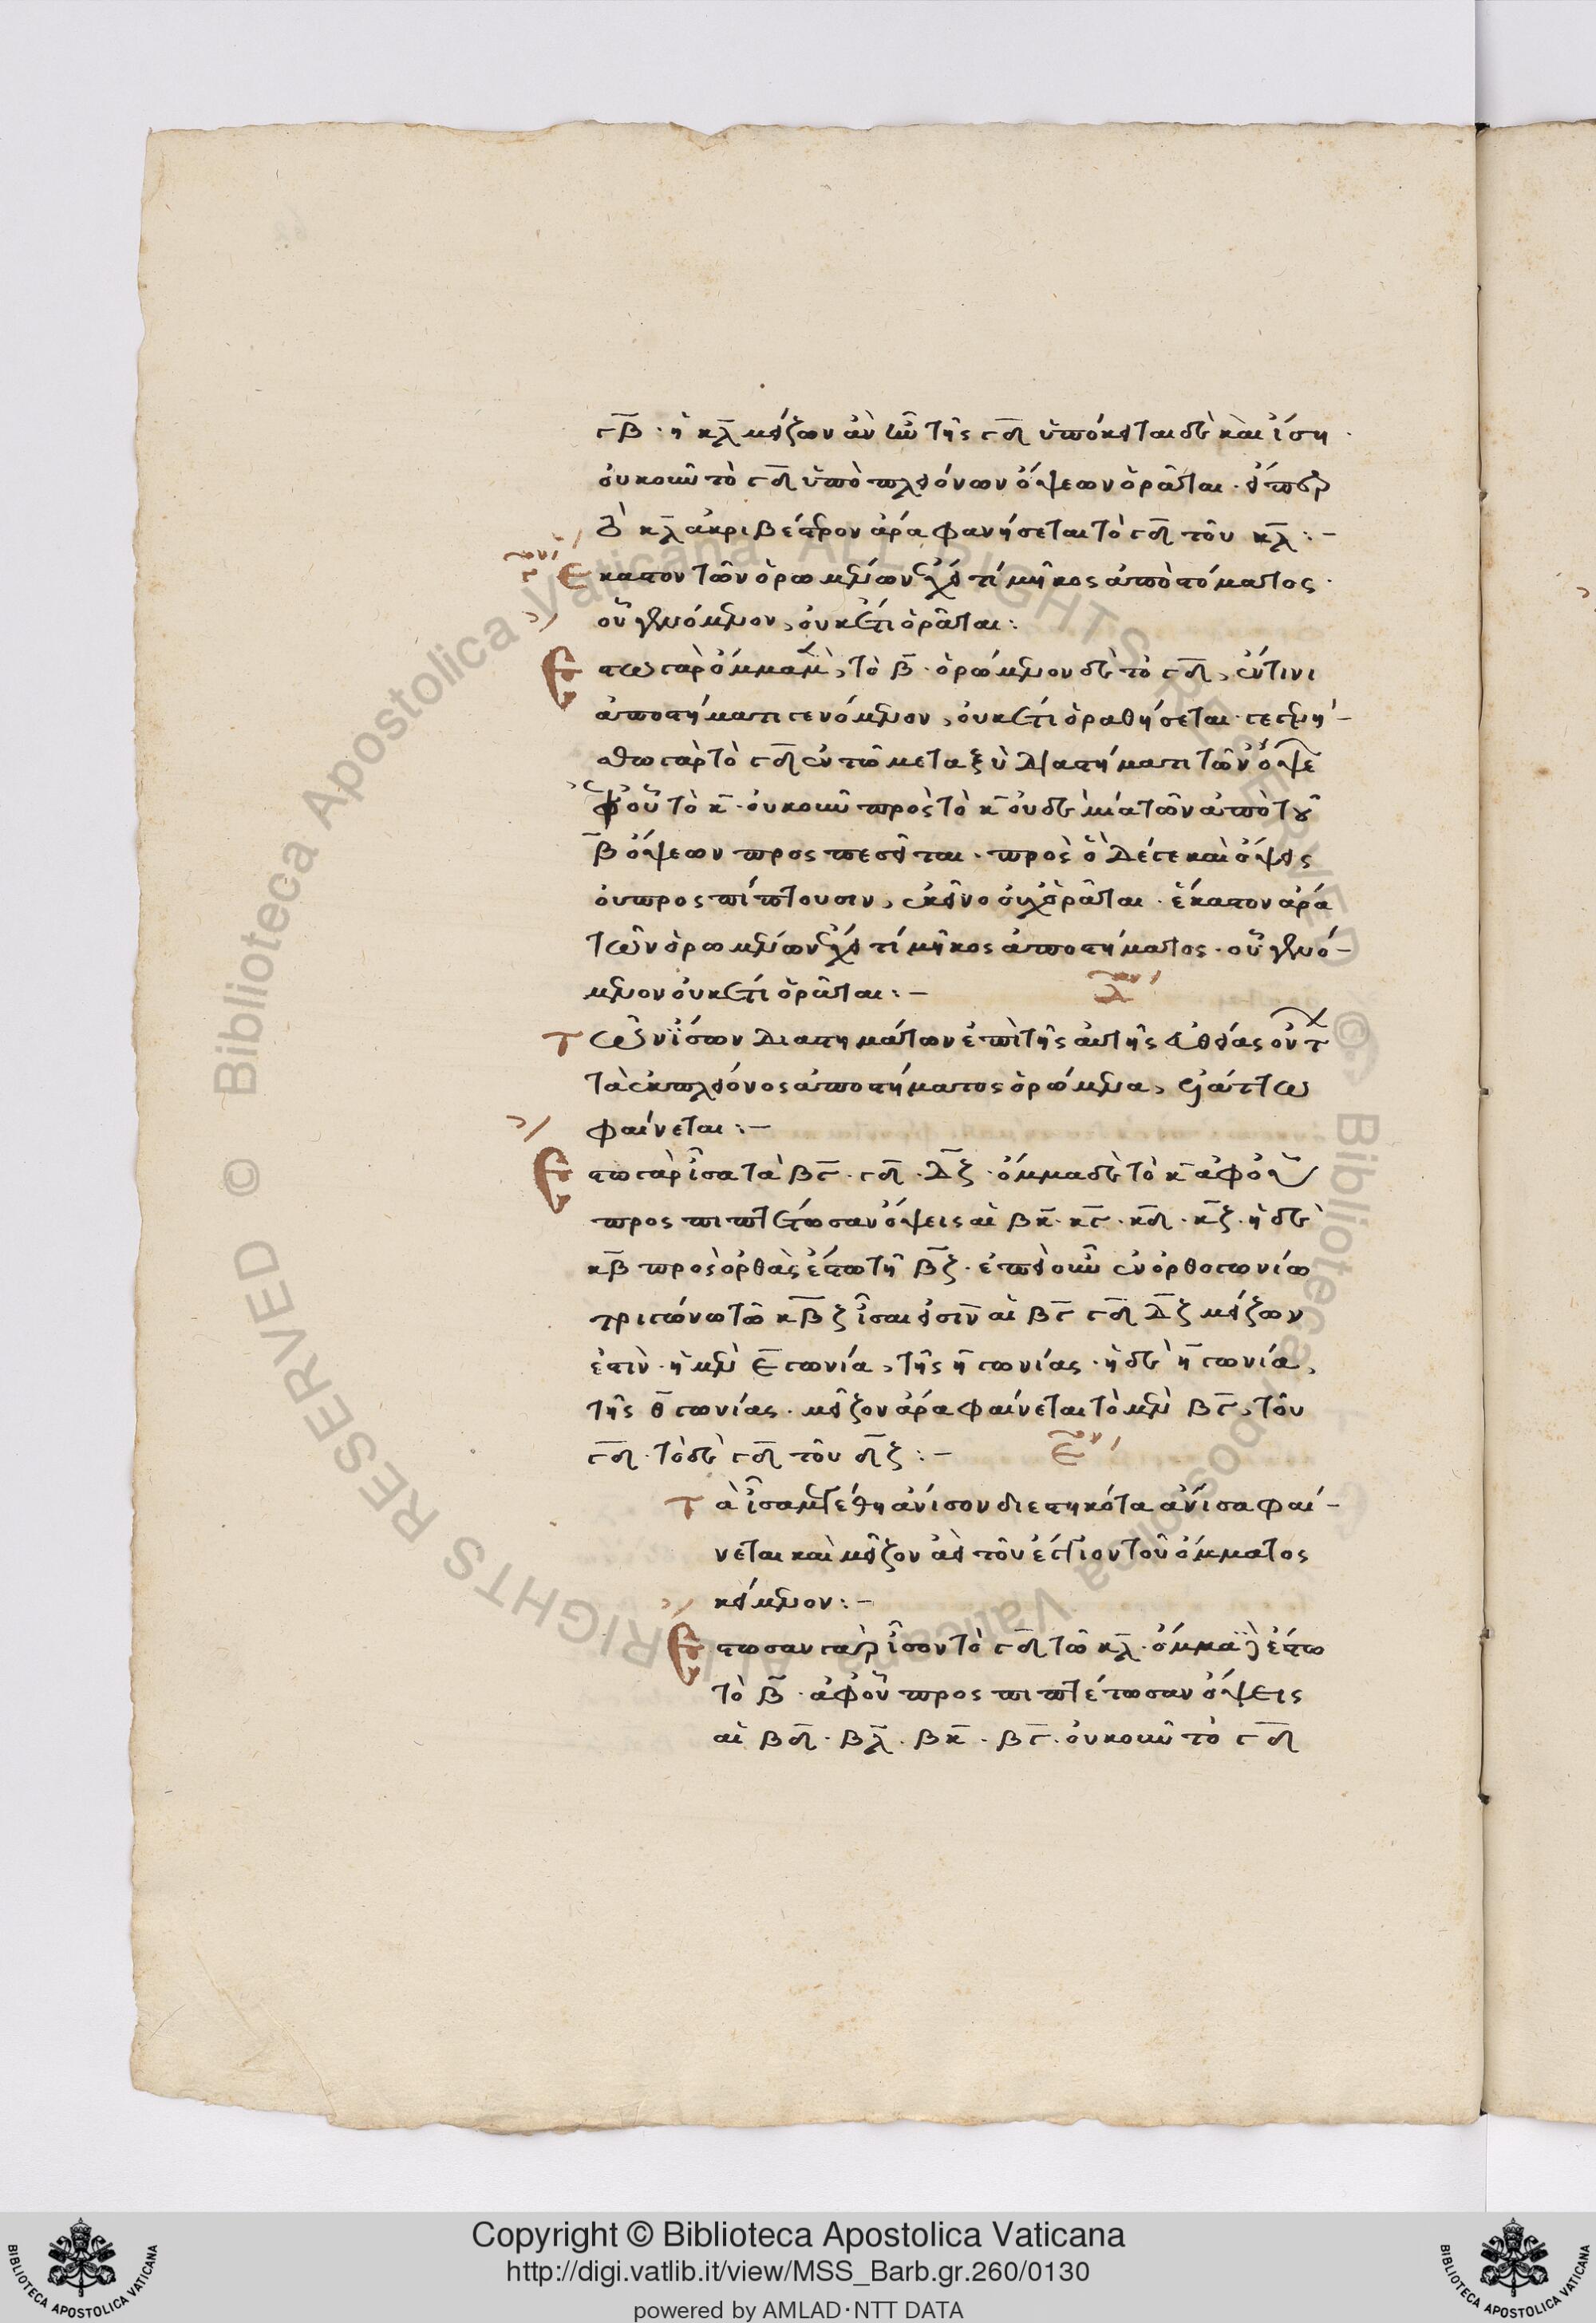 γβ · ἡ κλ μείζων ἂν ἦν τῆς γδ ὑπόκειται δὲ καὶ ἴση ·
οὐκοῦν τὸ γδ ὑπὸ πλειόνων ὄψεων ὁρᾶται · ἤπερ
τὸ κλ ἀκριβέστερον ἄρα φανήσεται τὸ γδ τοῦ κλ : –
Ἕκαστον τῶν ὁρωμένων ἔχει τί μῆκος ἀποστήματος ·
οὗ γενόμενον, οὐκέτι ὁρᾶται :
Ἔστω γὰρ ὄμμα μὲν, τὸ β · ὁρώμενον δὲ τὸ γδ, ἔν τινι
ἀποστήματι γενόμενον, οὐκέτι ὁραθήσεται · γεγενή–
σθω γὰρ τὸ γδ ἐν τῷ μεταξὺ διαστήματι τῶν ὄψε
ἐφ' οὗ τὸ κ · οὐκοῦν πρὸς τὸ κ οὐδεμία τῶν ἀπὸ τοῦ
β ὄψεων προσπεσεῖται · πρὸς ὃ δέ γε καὶ ὄψεις
οὐ προσπίπτουσιν, ἐκεῖνο οὐχ ὁρᾶται · ἕκαστον ἄρα
τῶν ὁρωμένων ἔχει τί μῆκος ἀποστήματος · οὗ γενό–
μενον οὐκέτι ὁρᾶται : –
δον
Τῶν ἴσων διαστημάτων ἐπὶ τῆς αὐτῆς εὐθείας ὄντ
τὰ ἐκ πλείονος ἀποστήματος ὁρώμενα, ἐλάττω
φαίνεται : –
Ἔστω γὰρ ἴσα τὰ βγ · γδ · δζ · ὄμμα δὲ τὸ κ ἀφ' οὗ
προσπιπτέτωσαν ὄψεις αἱ βκ · κγ · κδ · κζ · ἡ δὲ
κβ πρὸς ὀρθὰς ἔστω τῇ βζ · ἐπεὶ οὖν ἐν ὀρθογωνίῳ
τριγώνῳ τῷ κβζ ἴσαι εἰσὶν αἱ βγ γδ δζ μείζων
ἐστὶν · ἡ μὲν ε γωνία, τῆς η γωνίας · ἡ δὲ η γωνία,
τῆς θ γωνίας · μεῖζον ἄρα φαίνεται τὸ μὲν βγ, τοῦ
γδ · τὸ δὲ γδ τοῦ δζ : –
εον
Τὰ ἴσα μεγέθη ἄνισον διεστηκότα ἄνισα φαί–
νεται καὶ μεῖζον ἀεὶ τοῦ ἔγγιον τοῦ ὄμματος
κείμενον : –
Ἔστωσαν γὰρ ἴσον τὸ γδ τῷ κλ · ὄμμα δὲ ἔστω
τὸ β · ἀφ' οὗ προσπιπτέτωσαν ὄψεις
αἱ βδ · βλ · βκ · βγ · οὐκοῦν τὸ γδ
Copyright © Biblioteca Apostolica Vaticana
http://digi.vatlib.it/view/MSS_Barb.gr.260/0130
powered by AMLAD·NTT DATA